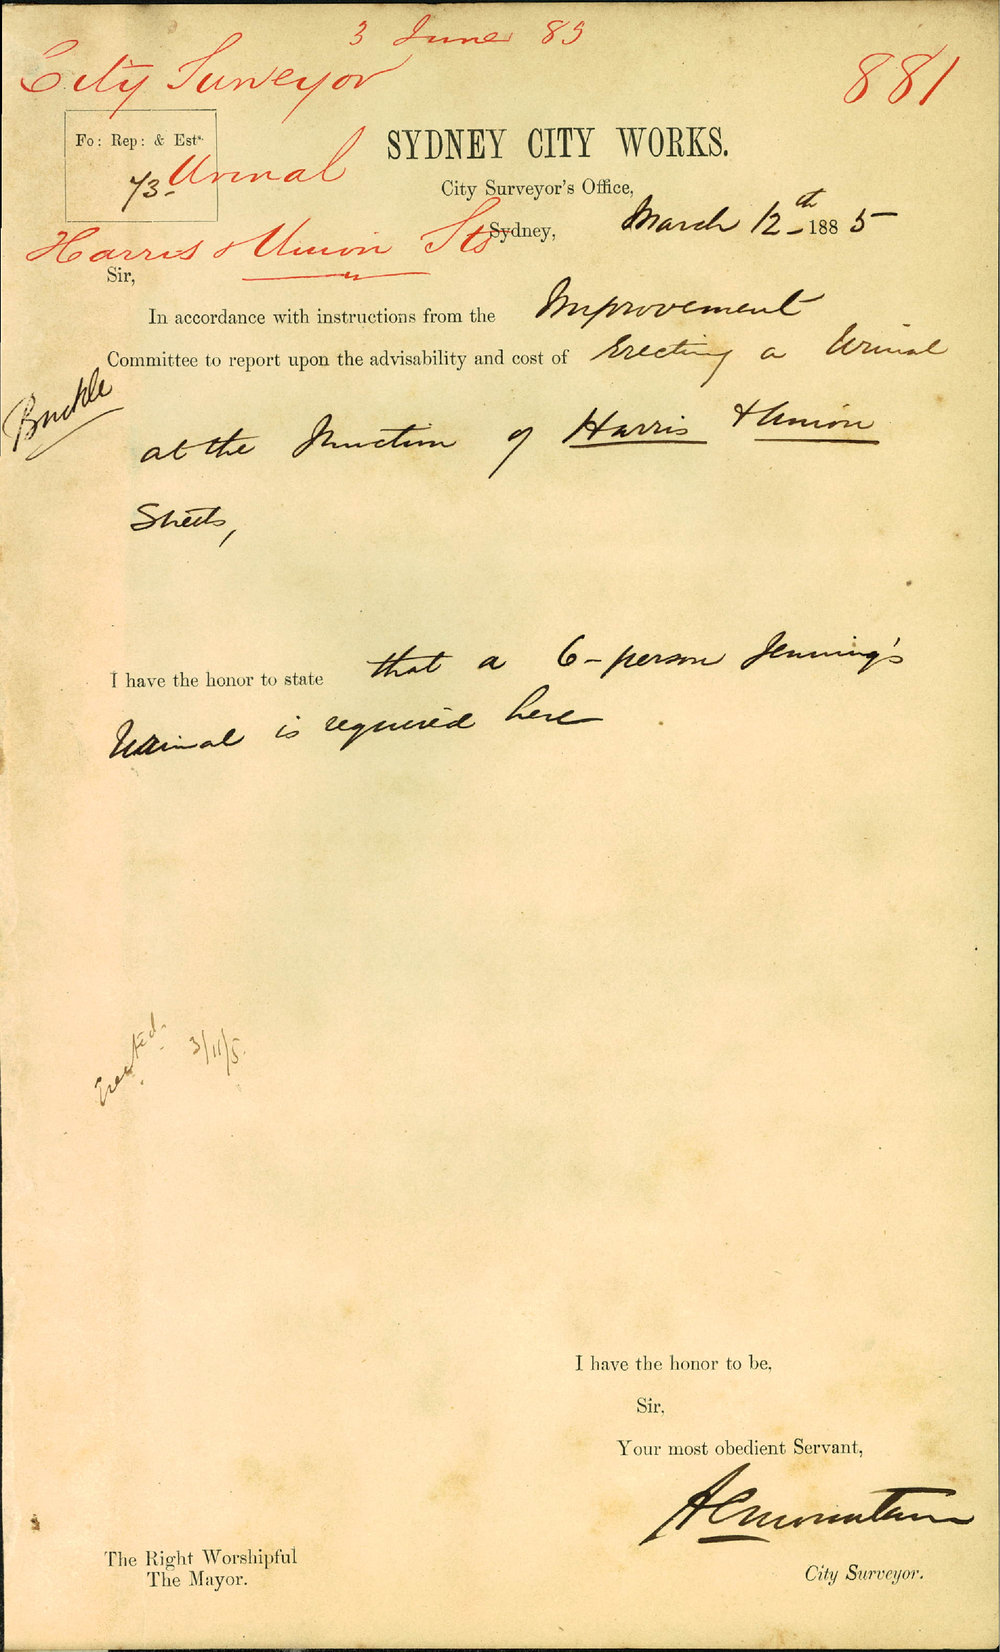 3 June 85
City Surveyor
881
Fo: Rep: & Ests.
73 Urinal
SYDNEY CITY WORKS.
City Surveyor's Office,
Harris & Union Sts
Sydney, March 12th 1885
Sir,
In accordance with instructions from the Improvement
Committee to report upon the advisability and cost of Erecting a Urinal
Buckle
at the Junction of Harris & Union
Streets,
I have the honor to state that a 6-person Jenning's
Urinal is required here
Erected. 3/11/5.
I have the honor to be,
Sir,
Your most obedient Servant,
A C Mountain
The Right Worshipful
The Mayor.
City Surveyor.